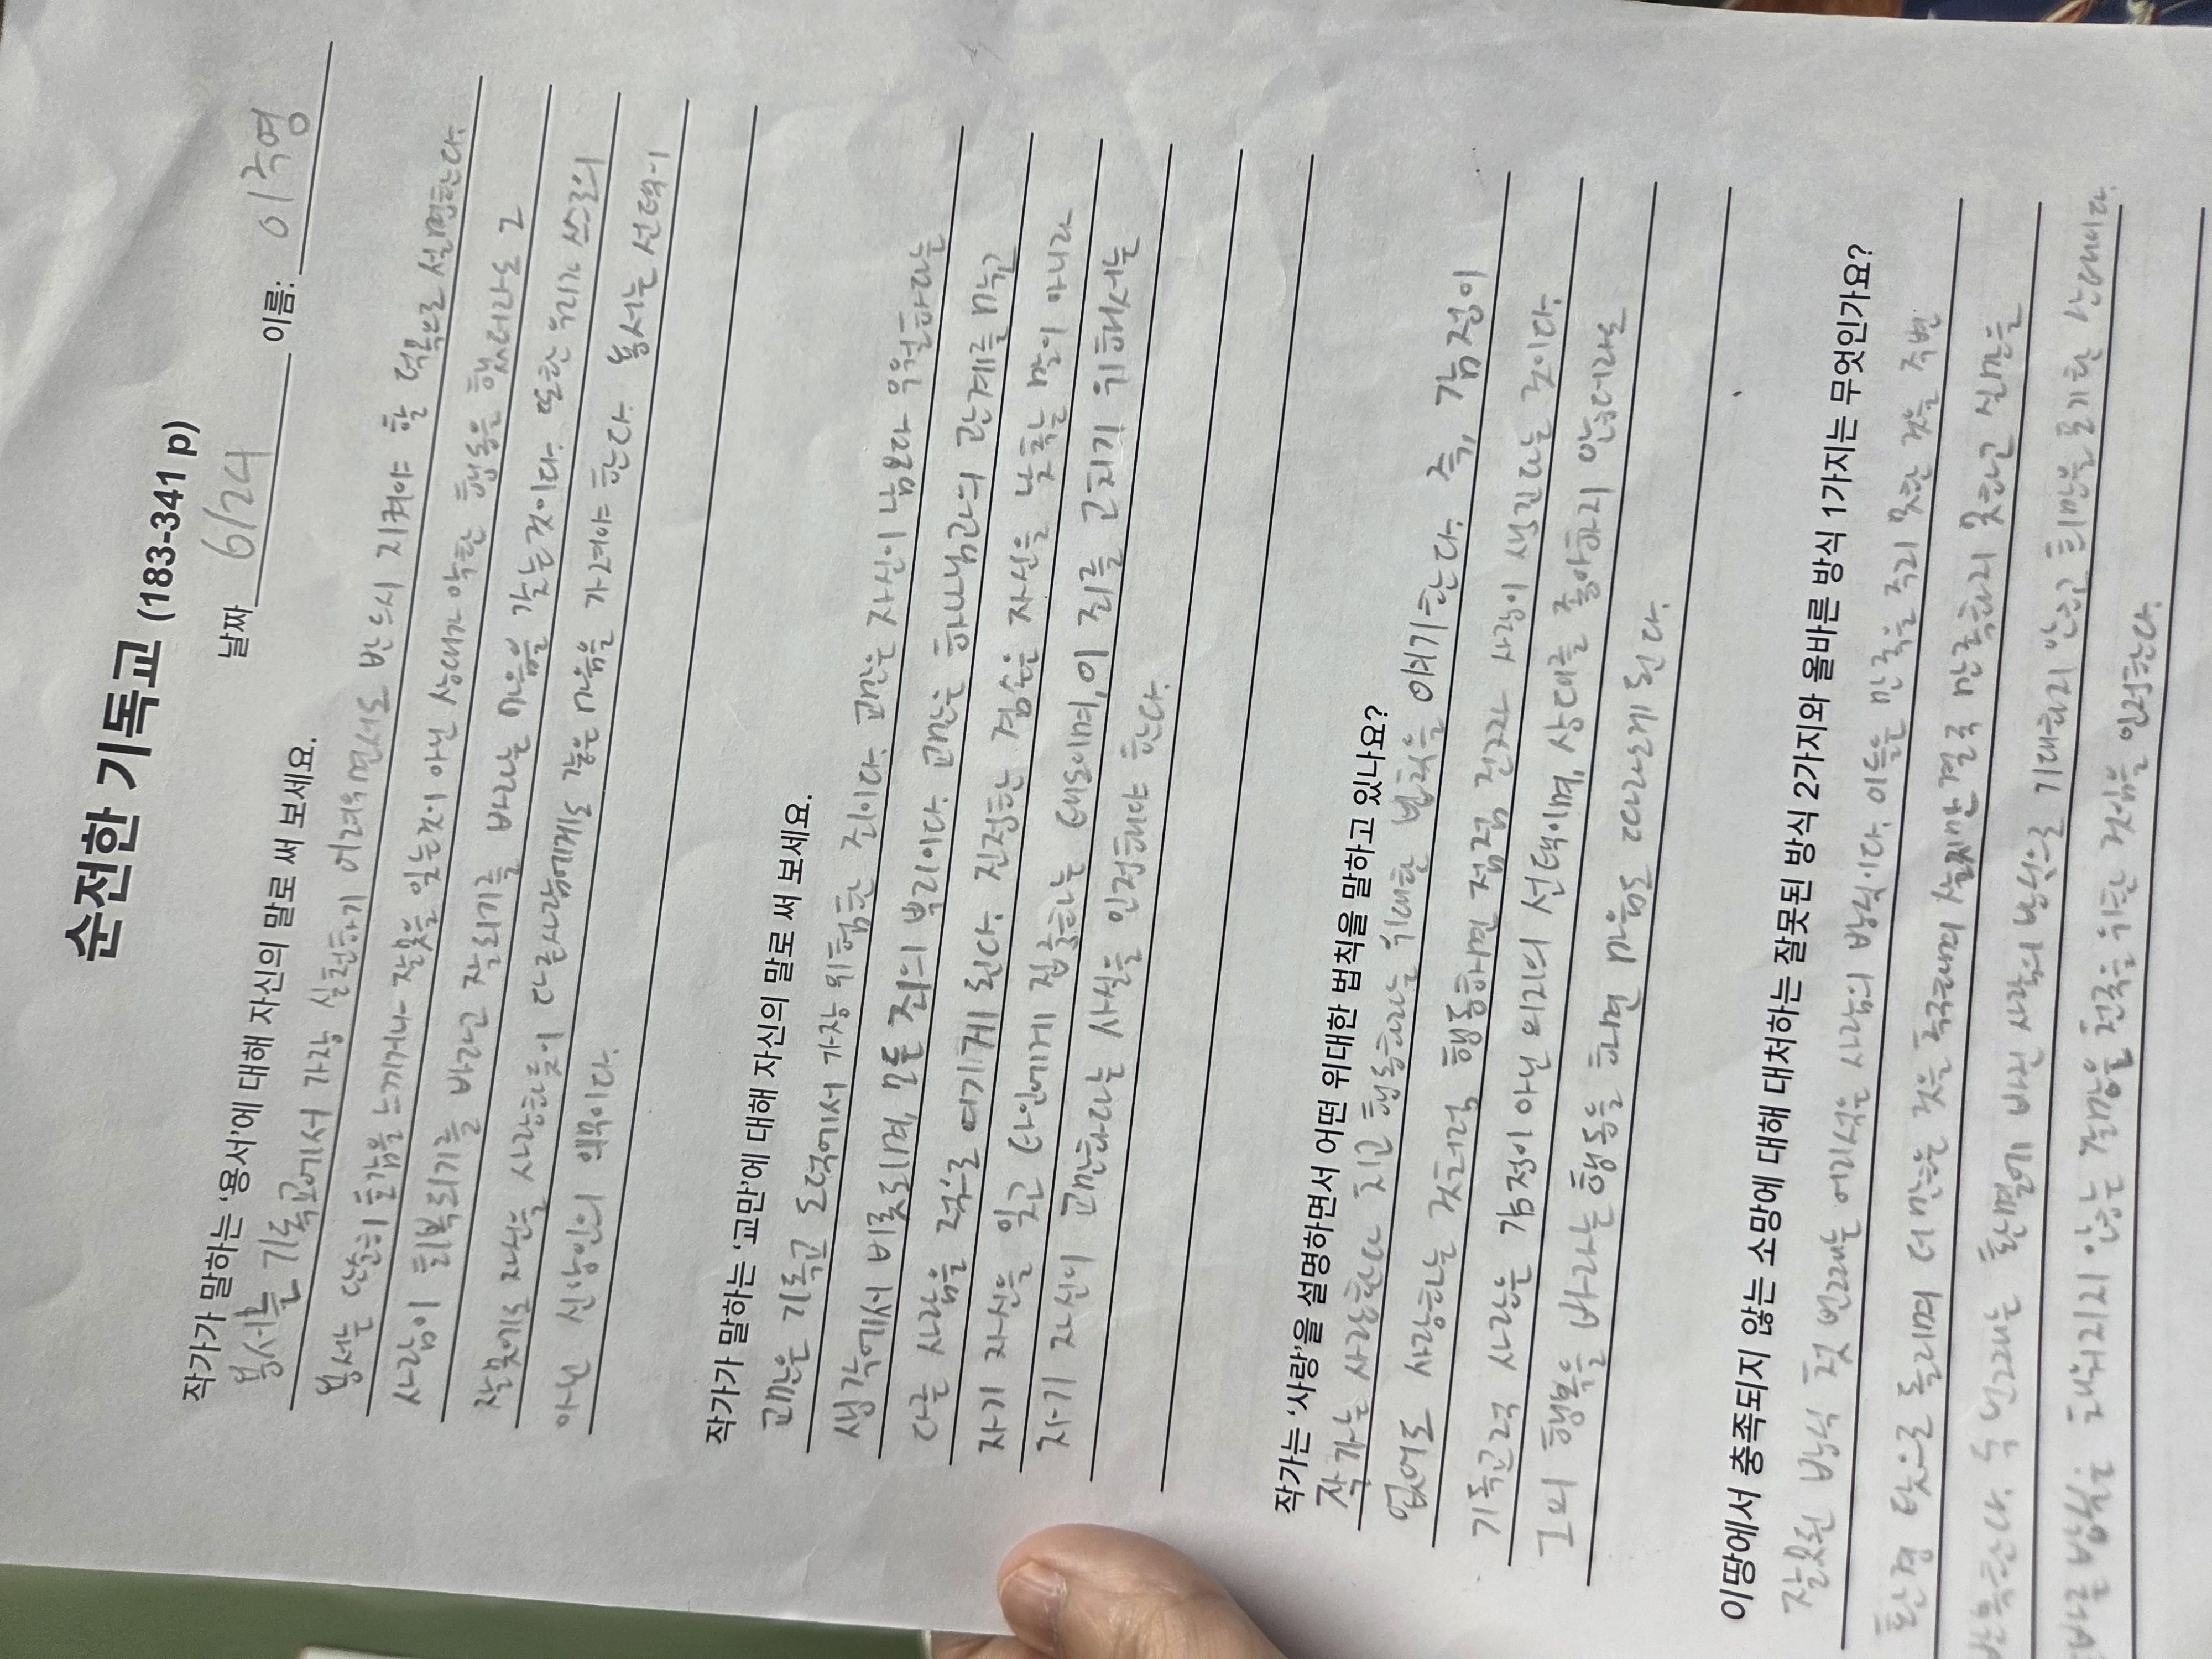 순전한 기독교 (183-341 p)
날짜 6/24 이름: 이국영
작가가 말하는 '용서'에 대해 자신의 말로 써 보세요.
용서는 기독교에서 가장 실천하기 어려우면서도 반드시 지켜야 할 덕목으로 설명한다.
용서는 단순히 호감을 느끼거나 잘못을 잊는것이 아닌 상대가 악한 행동을 했더라도 그
사람이 회복되기를 바라고 잘되기를 바라는 마음을 갖는것이다. 또한 우리가 스스로의
잘못에도 자신을 사랑하듯이 다른사람에게도 같은 마음을 가져야 한다. 용서는 선택이
아닌 신앙인의 의무이다.
작가가 말하는 '교만'에 대해 자신의 말로 써 보세요.
교만은 기독교 도덕에서 가장 위험한 죄이다. 교만은 자신이 남보다 우월하다는
생각에서 비롯되며, 모든 죄의 뿌리이다. 교만은 하나님과의 관계를 막고
다른 사람을 적으로 여기게 된다. 진정한 겸손은 자신을 낮추는 말이 아니라
자기 자신을 잊고 타인에게 집중하는 태도이며, 이 죄를 고치기 위해서는
자기 자신이 교만하다는 사실을 인정해야 한다.
작가는 '사랑'을 설명하면서 어떤 위대한 법칙을 말하고 있나요?
작가는 사랑한다 치고 행동하라는 위대한 법칙을 이야기한다. 즉, 감정이
없어도 사랑하는 것처럼 행동하면 점점 진짜 사랑이 생긴다는 것이다.
기독교적 사랑은 감정이 아닌 의지의 선택이며, 상대를 좋아하지 않더라도
그의 행복을 바라는 행동을 하면 마음도 따라오게 된다.
이땅에서 충족되지 않는 소망에 대해 대처하는 잘못된 방식 2가지와 올바른 방식 1가지는 무엇인가요?
잘못된 방식 첫 번째는 어리석은 사람의 방식이다. 이들은 만족을 주지 못한 것을 주변
환경 탓으로 돌리며 더 많은 것을 추구하며 살지만 결국 만족하지 못하고 실망을
반복한다. 두 번째는 환멸에 빠진 사람의 방식으로 기대하지 않고 희망을 포기한 상태이다.
방식은 채워지지 않는 갈망을 천국을 위한 것임을 인정한다.